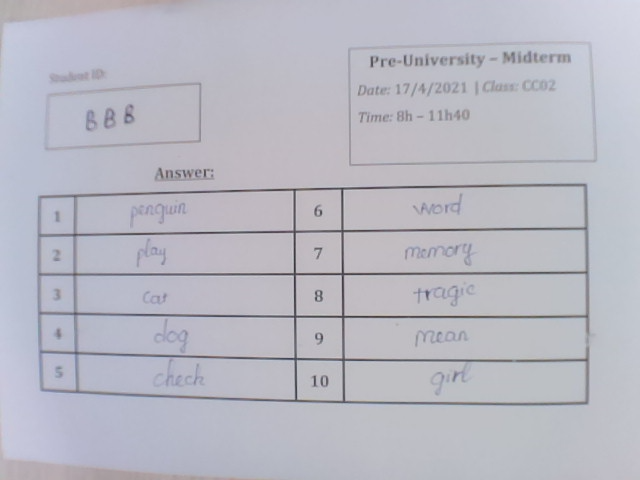 Student ID:
BBB
Pre-University – Midterm
Date: 17/4/2021 | Class: CC02
Time: 8h – 11h40
Answer:
1 penguin 6 word
2 play 7 memory
3 cat 8 tragic
4 dog 9 mean
5 check 10 girl